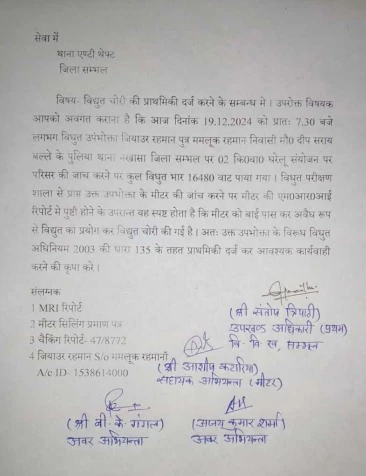 सेवा में
थाना एण्टी थेफ्ट
जिला सम्भल
विषय- विद्युत चोरी की प्राथमिकी दर्ज करने के सम्बन्ध मे । उपरोक्त विषयक
आपको अवगत कराना है कि आज दिनांक 19.12.2024 को प्रातः 7.30 बजे
लगभग विधुत उपभोक्ता जियाउर रहमान पुत्र ममलूक रहमान निवासी मौ0 दीप सराय
बल्ले के पुलिया थाना नखासा जिला सम्भल पर 02 कि0वा0 घरेलू संयोजन पर
परिसर की जाच करने पर कुल विधुत भार 16480 वाट पाया गया । विधुत परीक्षण
शाला से प्राप्त उक्त उपभोक्ता के मीटर की जांच करने पर मीटर की एम0आर0आई
रिपोर्ट में पुष्टी होने के उपरान्त यह स्पष्ट होता है कि मीटर को बाई पास कर अवैध रूप
से विद्युत का प्रयोग कर विद्युत चोरी की गई है । अतः उक्त उपभोक्ता के विरूध विधुत
अधिनियम 2003 की धारा 135 के तहत प्राथमिकी दर्ज कर आवश्यक कार्यवाही
करने की कृपा करे ।
संलग्नक
1 MRI रिपोर्ट
2 मीटर सिलिंग प्रमाण पत्र
3 चैकिंग रिपोर्ट- 47/8772
4 जियाउर रहमान S/o ममलूक रहमानी
A/c ID- 1538614000
(श्री संतोष त्रिपाठी)
उपखण्ड अधिकारी (प्रथम)
वि. वि. ख. सम्भल
(श्री आशीष कटारिया)
सहायक अभियन्ता (मीटर)
(श्री वी. के. गंगल)
अवर अभियन्ता
(अजय कुमार शर्मा)
अवर अभियन्ता